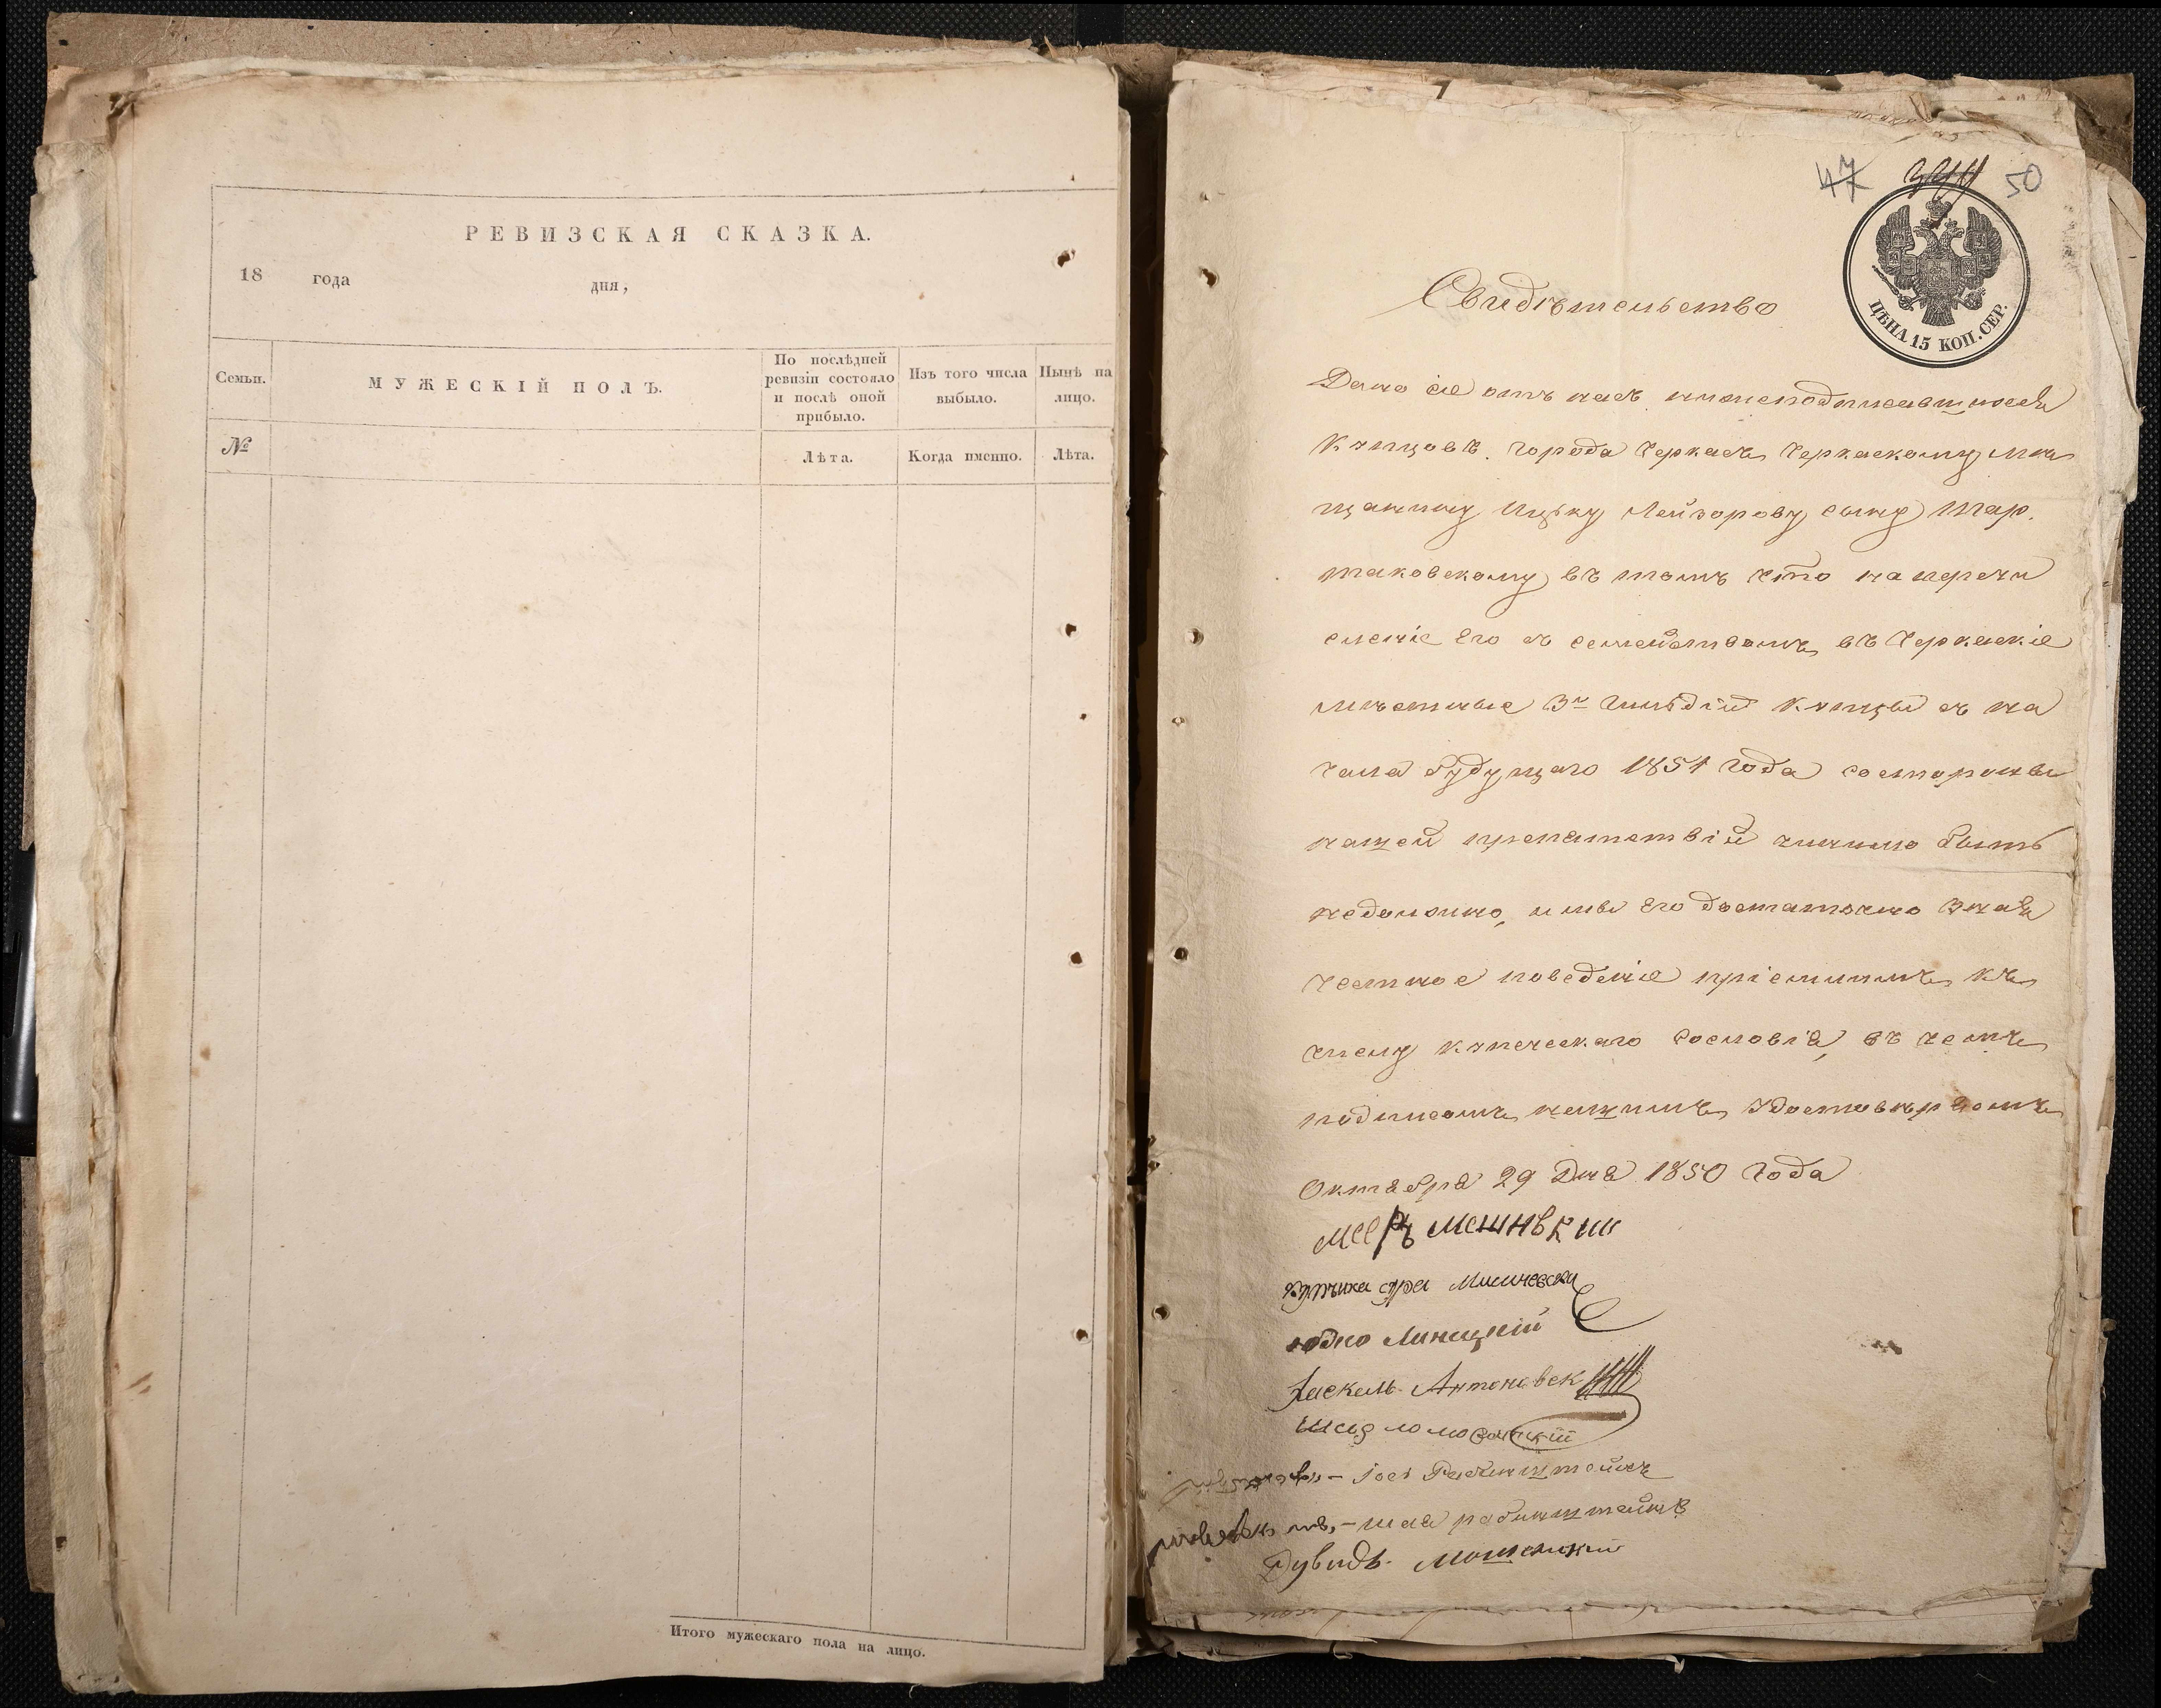 РЕВИЗСКАЯ СКАЗКА.
18 года дня,
Семьи.
МУЖЕСКІЙ ПОЛЪ.
По послѣдней
ревизіи состояло
и послѣ оной
прибыло.
Изъ того числа
выбыло.
Нынѣ на
лицо.
№
Лѣта.
Когда именно.
Лѣта.
Итого мужескаго пола на лицо.
47 50
ЦѢНА 15 КОП. СЕР.
Свидѣтельство
Дано сіе отъ насъ нижеподписавшихся
Купцовъ. города Черкасъ Черкаскому мѣ
щанину Ицьку Лейзорову сыну Тар.
таковскому въ томъ что на перечи
сленіе Его съ семействомъ въ Черкаскіе
мѣстные 3й Гильдіи Купцы съ на
чала будущаго 1851 года состороны
нашей препятствій чинимо быть
недолжно, и мы Его достаточно зная
честное поведеніе пріемлимъ къ
числу купеческаго сословія, въ чемъ
подписомъ нашимъ удостовѣряемъ
Октября 29 Дня 1850 года
Мееръ
Купчиха сура
Линецкій
Хаскель Антоновск
Іось Рабинштейнъ
шая рабинштейнъ
Дувидъ.